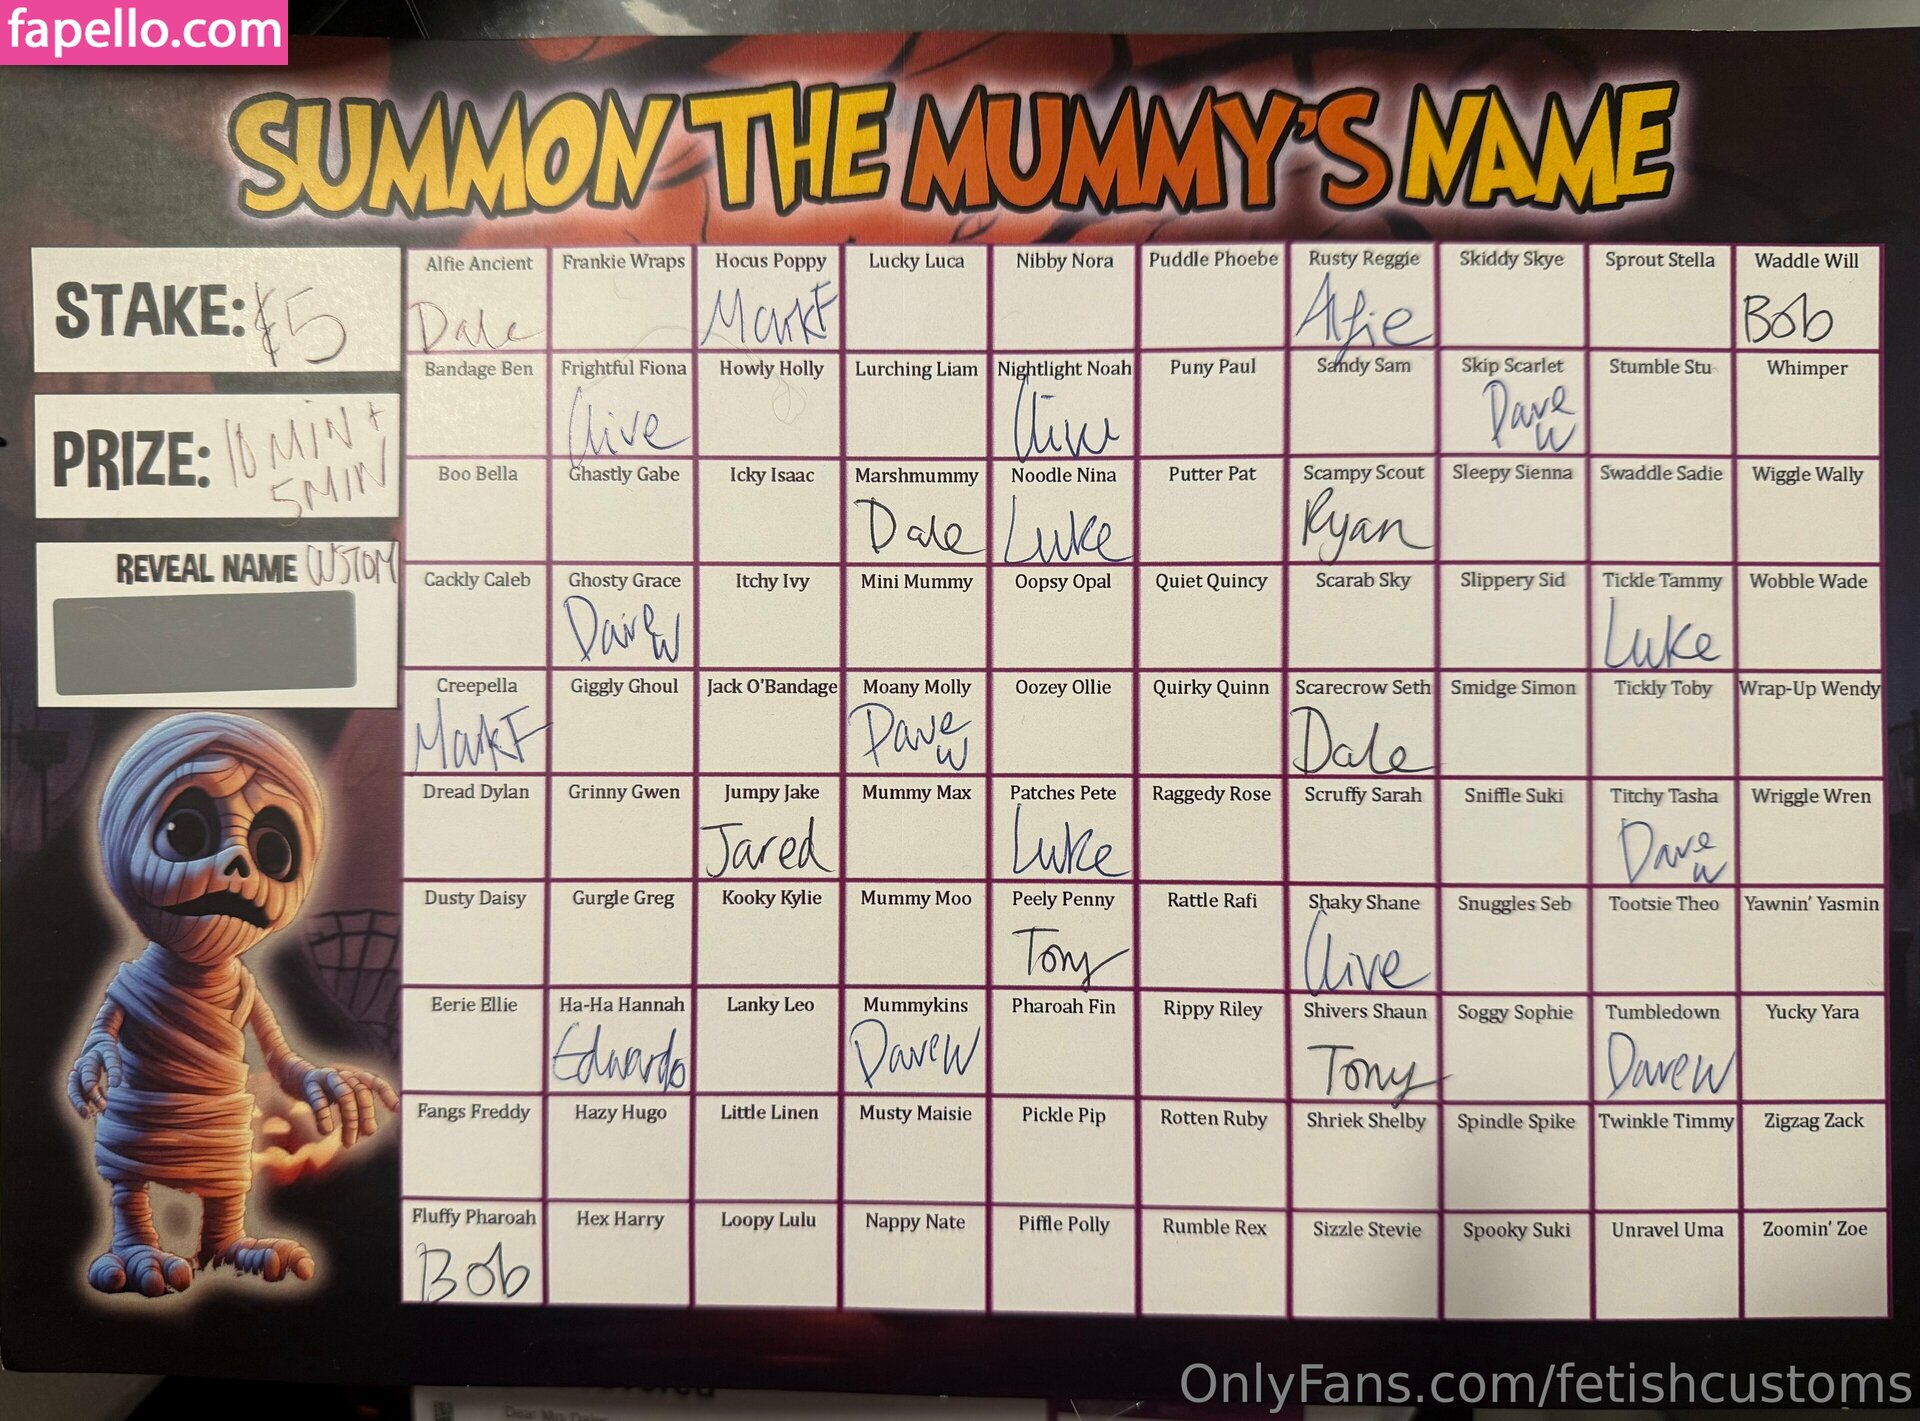 fapello.com
SUMMON THE MUMMY'S NAME
STAKE: £5
PRIZE: 10 MIN +
5 MIN
REVEAL NAME CUSTOM
Alfie Ancient Frankie Wraps Hocus Poppy Lucky Luca Nibby Nora Puddle Phoebe Rusty Reggie Skiddy Skye Sprout Stella Waddle Will
Dale Mark F Alfie Bob
Bandage Ben Frightful Fiona Howly Holly Lurching Liam Nightlight Noah Puny Paul Sandy Sam Skip Scarlet Stumble Stu Whimper
Clive Clive Dave W
Boo Bella Ghastly Gabe Icky Isaac Marshmummy Noodle Nina Putter Pat Scampy Scout Sleepy Sienna Swaddle Sadie Wiggle Wally
Dale Luke Ryan
Cackly Caleb Ghosty Grace Itchy Ivy Mini Mummy Oopsy Opal Quiet Quincy Scarab Sky Slippery Sid Tickle Tammy Wobble Wade
Dave W Luke
Creepella Giggly Ghoul Jack O'Bandage Moany Molly Oozey Ollie Quirky Quinn Scarecrow Seth Smidge Simon Tickly Toby Wrap-Up Wendy
Mark F Dave W Dale
Dread Dylan Grinny Gwen Jumpy Jake Mummy Max Patches Pete Raggedy Rose Scruffy Sarah Sniffle Suki Titchy Tasha Wriggle Wren
Jared Luke Dave W
Dusty Daisy Gurgle Greg Kooky Kylie Mummy Moo Peely Penny Rattle Rafi Shaky Shane Snuggles Seb Tootsie Theo Yawnin' Yasmin
Tony Clive
Eerie Ellie Ha-Ha Hannah Lanky Leo Mummykins Pharoah Fin Rippy Riley Shivers Shaun Soggy Sophie Tumbledown Yucky Yara
Edwardo Dave W Tony Dave W
Fangs Freddy Hazy Hugo Little Linen Musty Maisie Pickle Pip Rotten Ruby Shriek Shelby Spindle Spike Twinkle Timmy Zigzag Zack
Fluffy Pharoah Hex Harry Loopy Lulu Nappy Nate Piffle Polly Rumble Rex Sizzle Stevie Spooky Suki Unravel Uma Zoomin' Zoe
Bob
OnlyFans.com/fetishcustoms